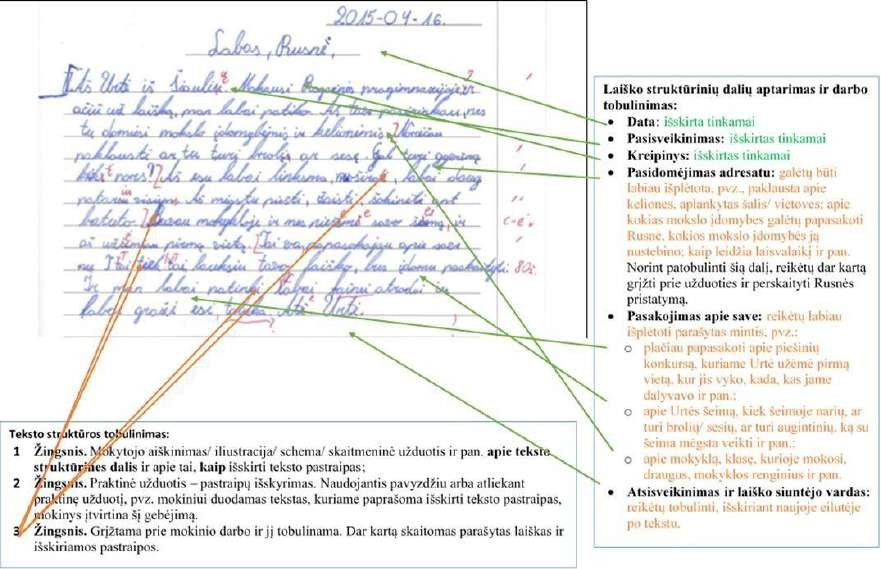 2015-04-16.
Labas, Rusnė,
Aš Urtė iš Šiaulių. Mokausi progimnazijoje
ačiū už laišką, man labai patiko.
tu domiesi mokslo įdomybėmis ir kelionėmis. Norėčiau
paklausti ar tu turi brolių ar sesę. Gal turi gyvūną
kokį nors? Aš esu labai linksma, labai daug
Aš mėgstu piešti,
savo šeimą, ir
aš užėmiau pirmą vietą. Tai
tai lauksiu tavo laiško, bus įdomu paskaityti
Ir man labai patinki labai atrodai ir
labai graži esi, Atė Urtė.
Laiško struktūrinių dalių aptarimas ir darbo
tobulinimas:
• Data: išskirta tinkamai
• Pasisveikinimas: išskirtas tinkamai
• Kreipinys: išskirtas tinkamai
• Pasidomėjimas adresatu: galėtų būti
labiau išplėtota, pvz., paklausta apie
keliones, aplankytas šalis/ vietoves; apie
kokias mokslo įdomybes galėtų papasakoti
Rusnė, kokios mokslo įdomybės ją
nustebino; kaip leidžia laisvalaikį ir pan.
Norint patobulinti šią dalį, reikėtų dar kartą
grįžti prie užduoties ir perskaityti Rusnės
pristatymą.
• Pasakojimas apie save: reikėtų labiau
išplėtoti parašytas mintis, pvz.:
o plačiau papasakoti apie piešinių
konkursą, kuriame Urtė užėmė pirmą
vietą, kur jis vyko, kada, kas jame
dalyvavo ir pan.;
o apie Urtės šeimą, kiek šeimoje narių, ar
turi brolių/ sesių, ar turi augintinių, ką su
šeima mėgsta veikti ir pan.;
o apie mokyklą, klasę, kurioje mokosi,
draugus, mokyklos renginius ir pan.
• Atsisveikinimas ir laiško siuntėjo vardas:
reikėtų tobulinti, išskiriant naujoje eilutėje
po tekstu.
Teksto struktūros tobulinimas:
1 Žingsnis. Mokytojo aiškinimas/ iliustracija/ schema/ skaitmeninė užduotis ir pan. apie teksto
struktūrines dalis ir apie tai, kaip išskirti teksto pastraipas;
2 Žingsnis. Praktinė užduotis – pastraipų išskyrimas. Naudojantis pavyzdžiu arba atliekant
praktinę užduotį, pvz. mokiniui duodamas tekstas, kuriame paprašoma išskirti teksto pastraipas,
mokinys įtvirtina šį gebėjimą.
3 Žingsnis. Grįžtama prie mokinio darbo ir jį tobulinama. Dar kartą skaitomas parašytas laiškas ir
išskiriamos pastraipos.